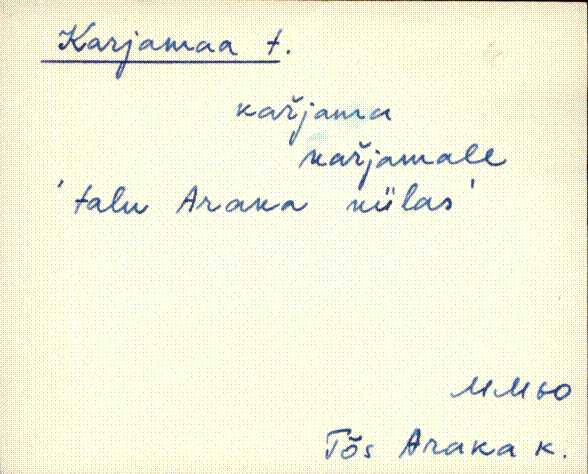 Karjamaa t.
kařjama
kařjamale
'talu Araka külas'
MM60
Tõs Araka k.